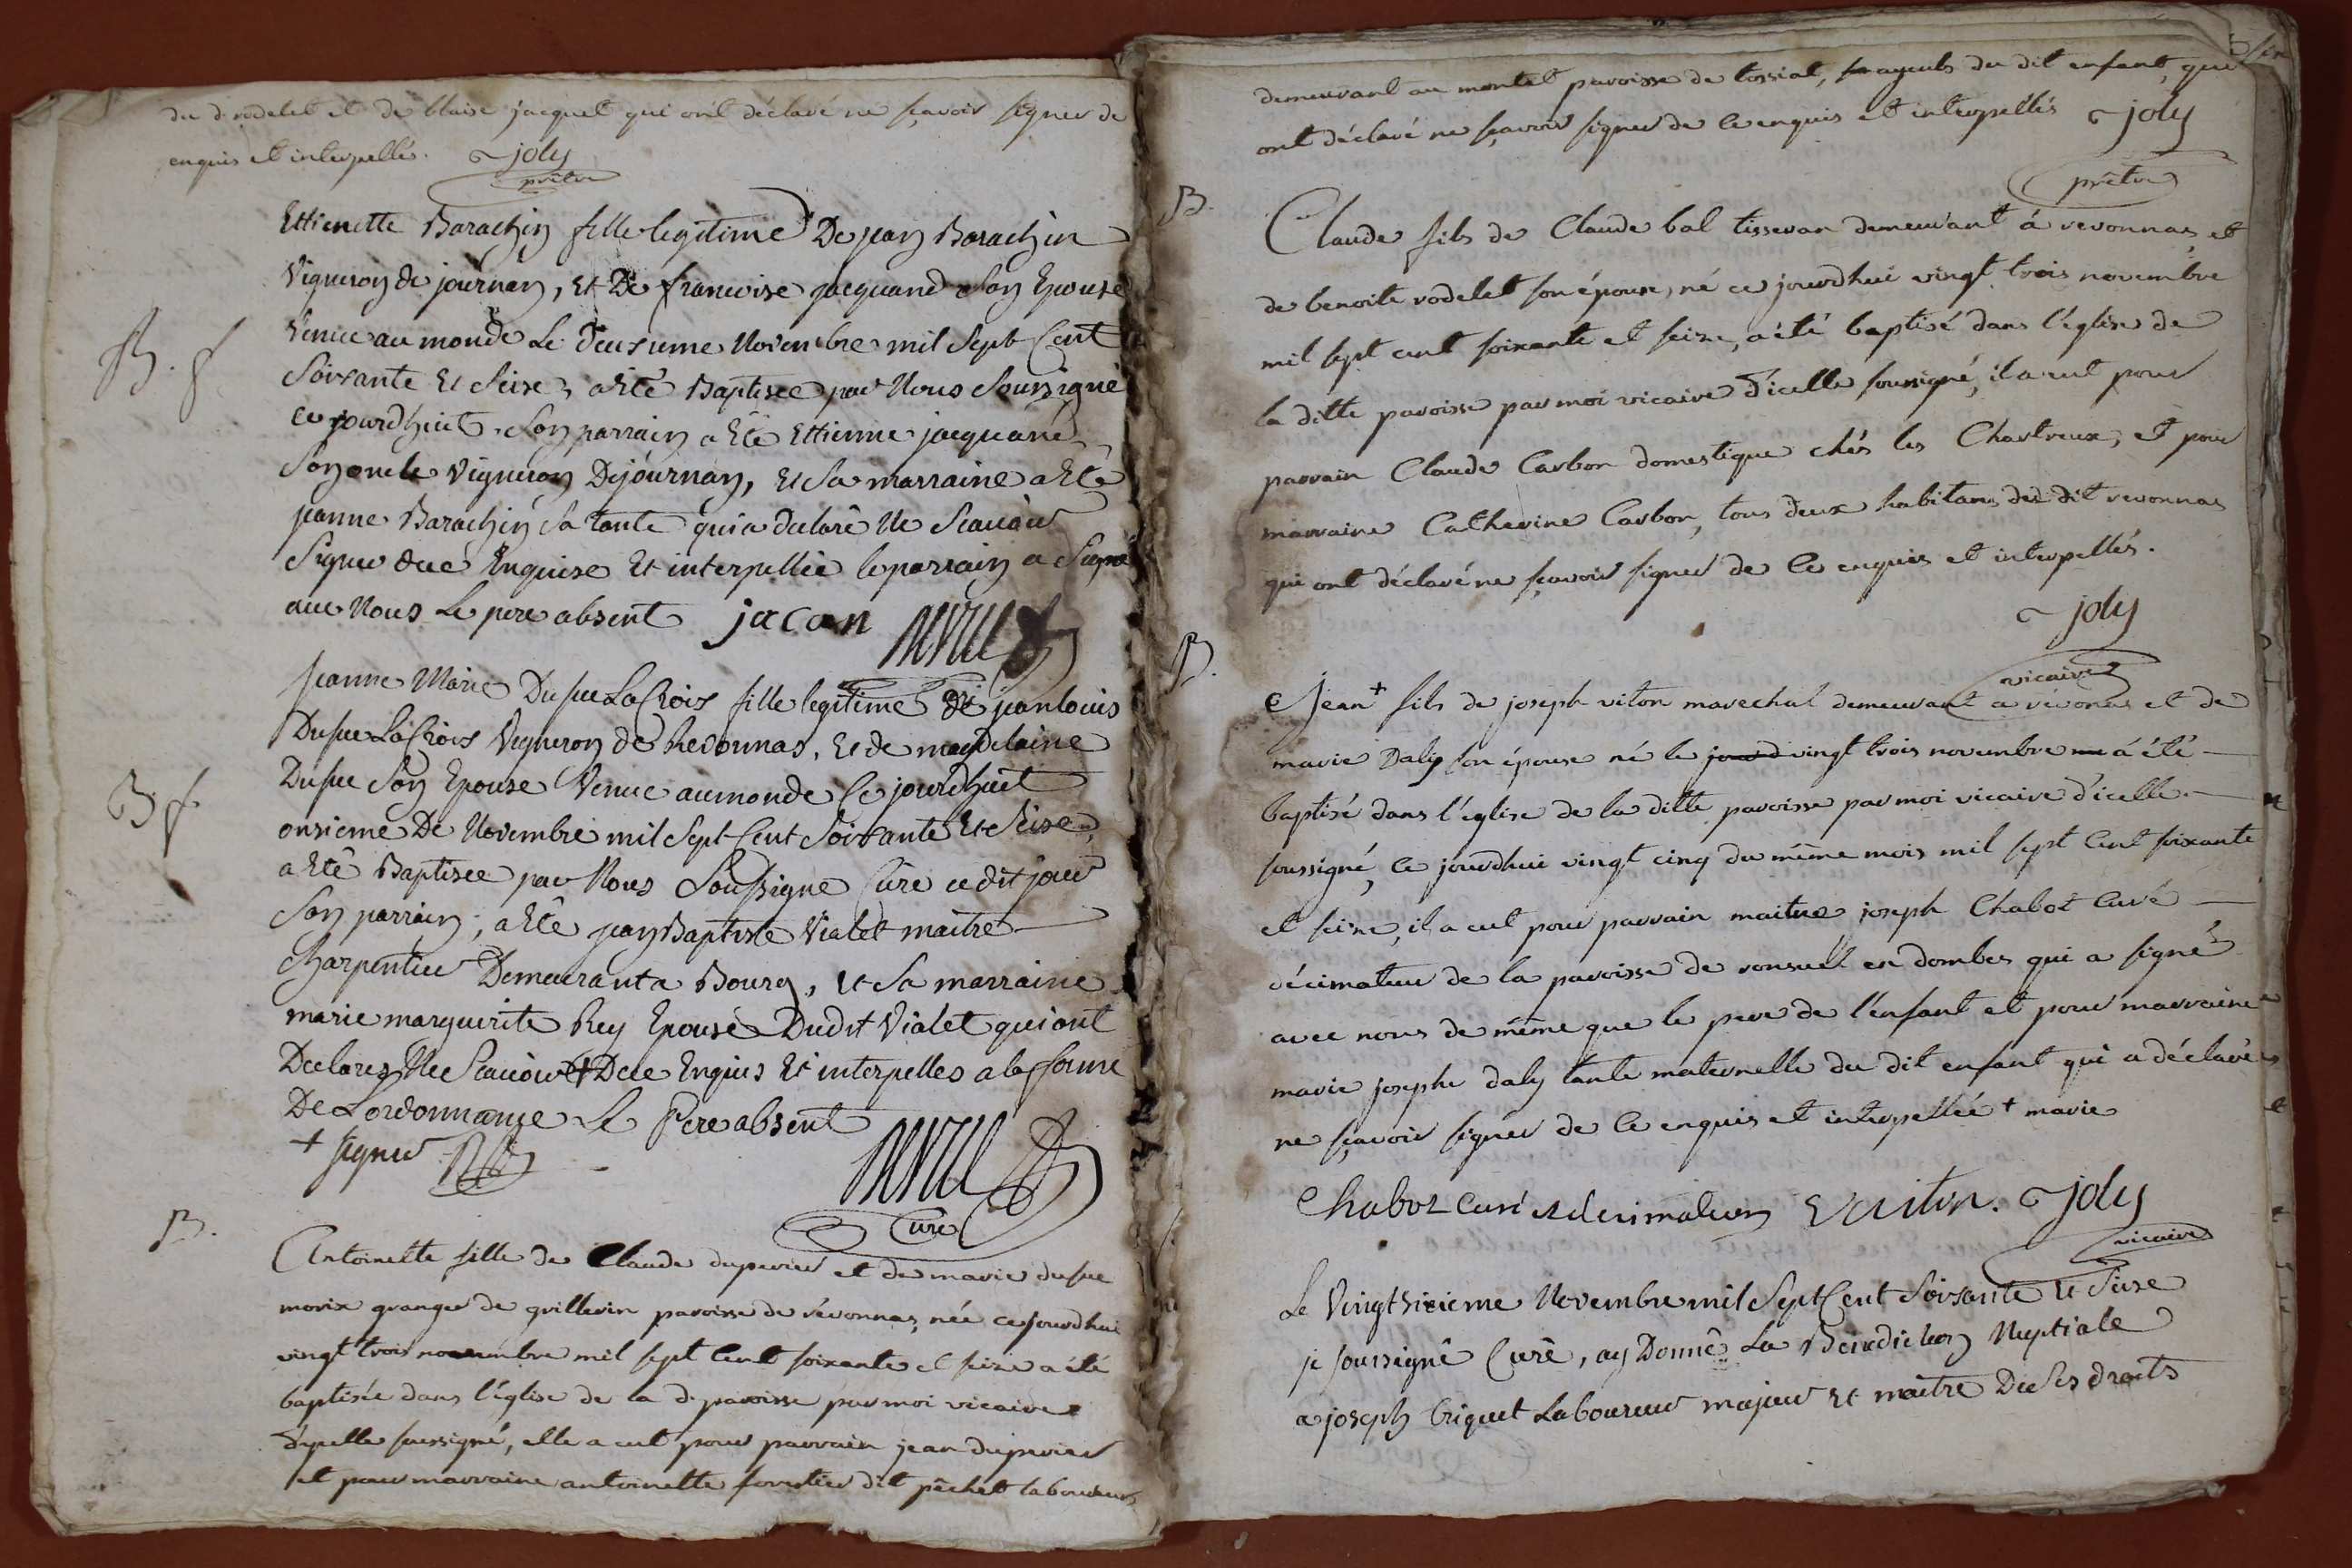 du d. rodelet et de blaise jacquet qui ont déclaré ne sçavoir signer de
enquis et interpellés. joly
prêtre
Ettienette Barachin fille legitime De jean Barachin
Vigneron de journan, et De francoise jacquand son Epouse
B. f Venue au monde Le deusieme Novembre mil Sept Cent
Soissante Et Seise, a Eté Baptisee par Nous Soussigné
ce jourdhuit. Son parrain a Eté Ettienne jacquand
Son oncle Vigneron De journan, Et Sa marraine a Eté
jeanne Barachin Sa tante qui a declaré Ne Scauoir
Signer de ce Enquise Et interpellée le parrain a Signé
auec Nous Le pere absent jacan
Jeanne Marie Dusuc LaCrois fille legitime de jean louis
Dusuc LaCrois Vigneron de Revonnas, Et de magdelaine
Dusuc Son Epouse Venue au monde Ce jourdhuit
B. f onsieme De Novembre mil Sept Cent Soissante Et Seise,
a Eté Baptisee par Nous Soussigne Curé ce dit jour
Son parrain, a Eté jean Baptiste Vialet maitre
Charpentier Demeurant a Bourg, et Sa marraine
marie marguerite Rey Epouse Dudit Vialet qui ont
Declarez Ne Scauoir + De ce Enquis Et interpelles a la forme
De Lordonnance Le Pere absent
+ signer
Curé
B. Antoinette fille de Claude duperier et de marie dusuc
morix granger de grillerin paroisse de révonnas, née ce jourdhui
vingt trois novembre mil sept cent soixante et seize a été
baptisée dans l'église de la d. paroisse par moi vicaire
d'icelle soussigné, elle a eut pour parrain jean duperier
et pour marraine antoinette forestier dit pêchet laboureurs
demeurant au montet paroisse de tossiat, ayeuls du dit enfant, qui
ont déclaré ne sçavoir signer de ce enquis et interpellés joly
prêtre
B. Claude fils de Claude bal tisseran demeurant à revonnas, et
de benoite rodelet son épouse, né ce jourdhui vingt trois novembre
mil sept cent soixante et seize, a été baptisé dans l'église de
la ditte paroisse par moi vicaire d'icelle soussigné, il a eut pour
parrain Claude Carbon domestique chés les Chartreux, et pour
marraine Catherine Carbon, tous deux habitans du dit revonnas
qui ont déclaré ne sçavoir signer de ce enquis et interpellés.
joly
vicaire
B. Jean + fils de joseph viton marechal demeurant a révonas et de
marie Daly son épouse né le jourd vingt trois novembre a été
baptisé dans l'église de la ditte paroisse par moi vicaire d'icelle
soussigné, ce jourdhui vingt cinq du même mois mil sept cent soixante
et seize, il a eut pour parrain maitre joseph Chabot curé
décimateur de la paroisse de ronsuel en dombes qui a signé
avec nous de même que le pere de l'enfant et pour marraine
marie josephe daly tante maternelle du dit enfant qui a déclaré
ne sçavoir signer de ce enquis et interpellée + marie
Chabot curé et decimateur viton. joly
vicaire
Le Vingt sixieme Novembre mil Sept Cent Soissante Et Seise
je soussigné Curé, ay Donné La Benediction Nuptiale
a joseph briquet Laboureur majeur Et maitre De Ses droits